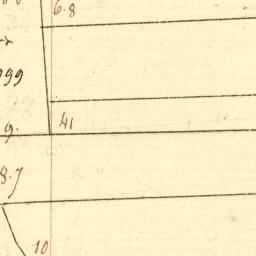 6.8
999
9. 41
8.7
10